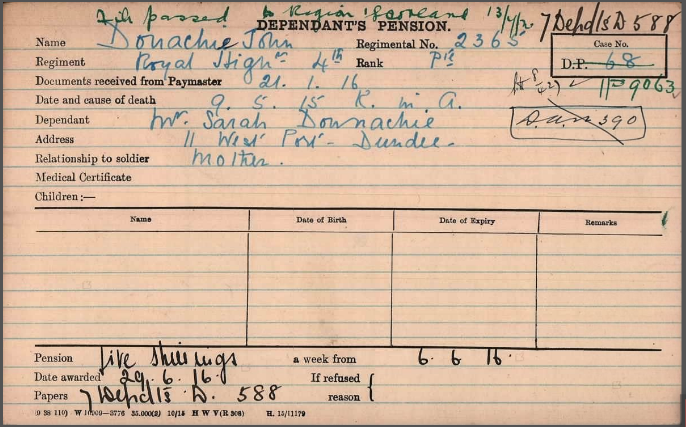 File passed to Region Scotland 13/4/2
7 Depd/s D 588
DEPENDANT'S PENSION.
Name Donachie John Regimental No. 2365
Case No.
D.P. 68
Regiment Royal High rs 4th Rank Pte
1P 9063
Documents received from Paymaster 21. 1. 16
Date and cause of death 9. 5. 15 K. in A.
Dependant Mrs. Sarah Donnachie
390
Address 11 West Port - Dundee.
Relationship to soldier Mother.
Medical Certificate
Children:—
Name Date of Birth Date of Expiry Remarks
Pension five shillings a week from 6. 6. 16.
Date awarded 29. 6. 16. If refused
Papers 7 Depd/s D. 588 reason
(9 38 110) W 10009—3776 35,000(2) 10/15 H W V(R 308) H. 15/11179